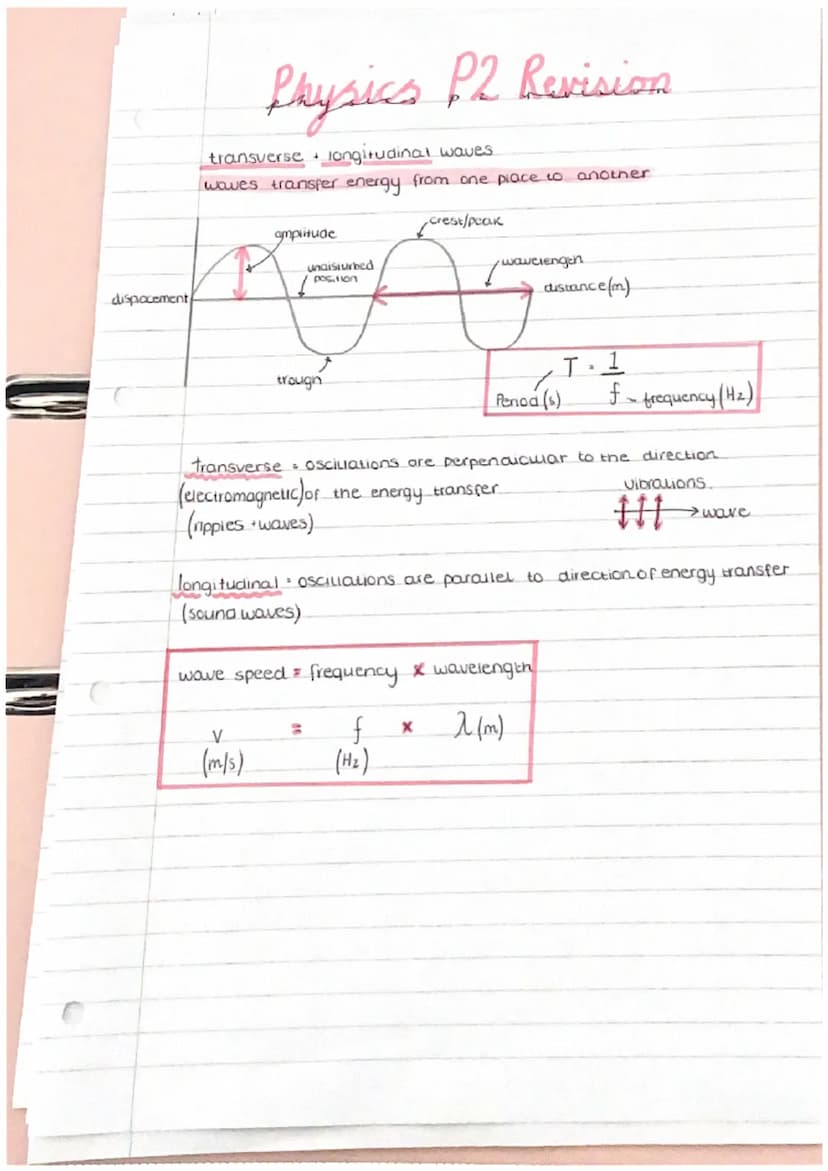 Physics P2 Revision
transverse + longitudinal waves
waves transfer energy from one place to another
crest/peak
amplitude
undisturbed
position
wavelength
dispacement
distance (m)
trough
T = 1
f - frequency (Hz)
Period (s)
transverse = oscillations are perpendicular to the direction
(electromagnetic) of the energy transfer
vibrations.
(ripples + waves)
wave
longitudinal = oscillations are parallel to direction of energy transfer
(sound waves)
wave speed = frequency x wavelength
v = f x λ (m)
(m/s) (Hz)